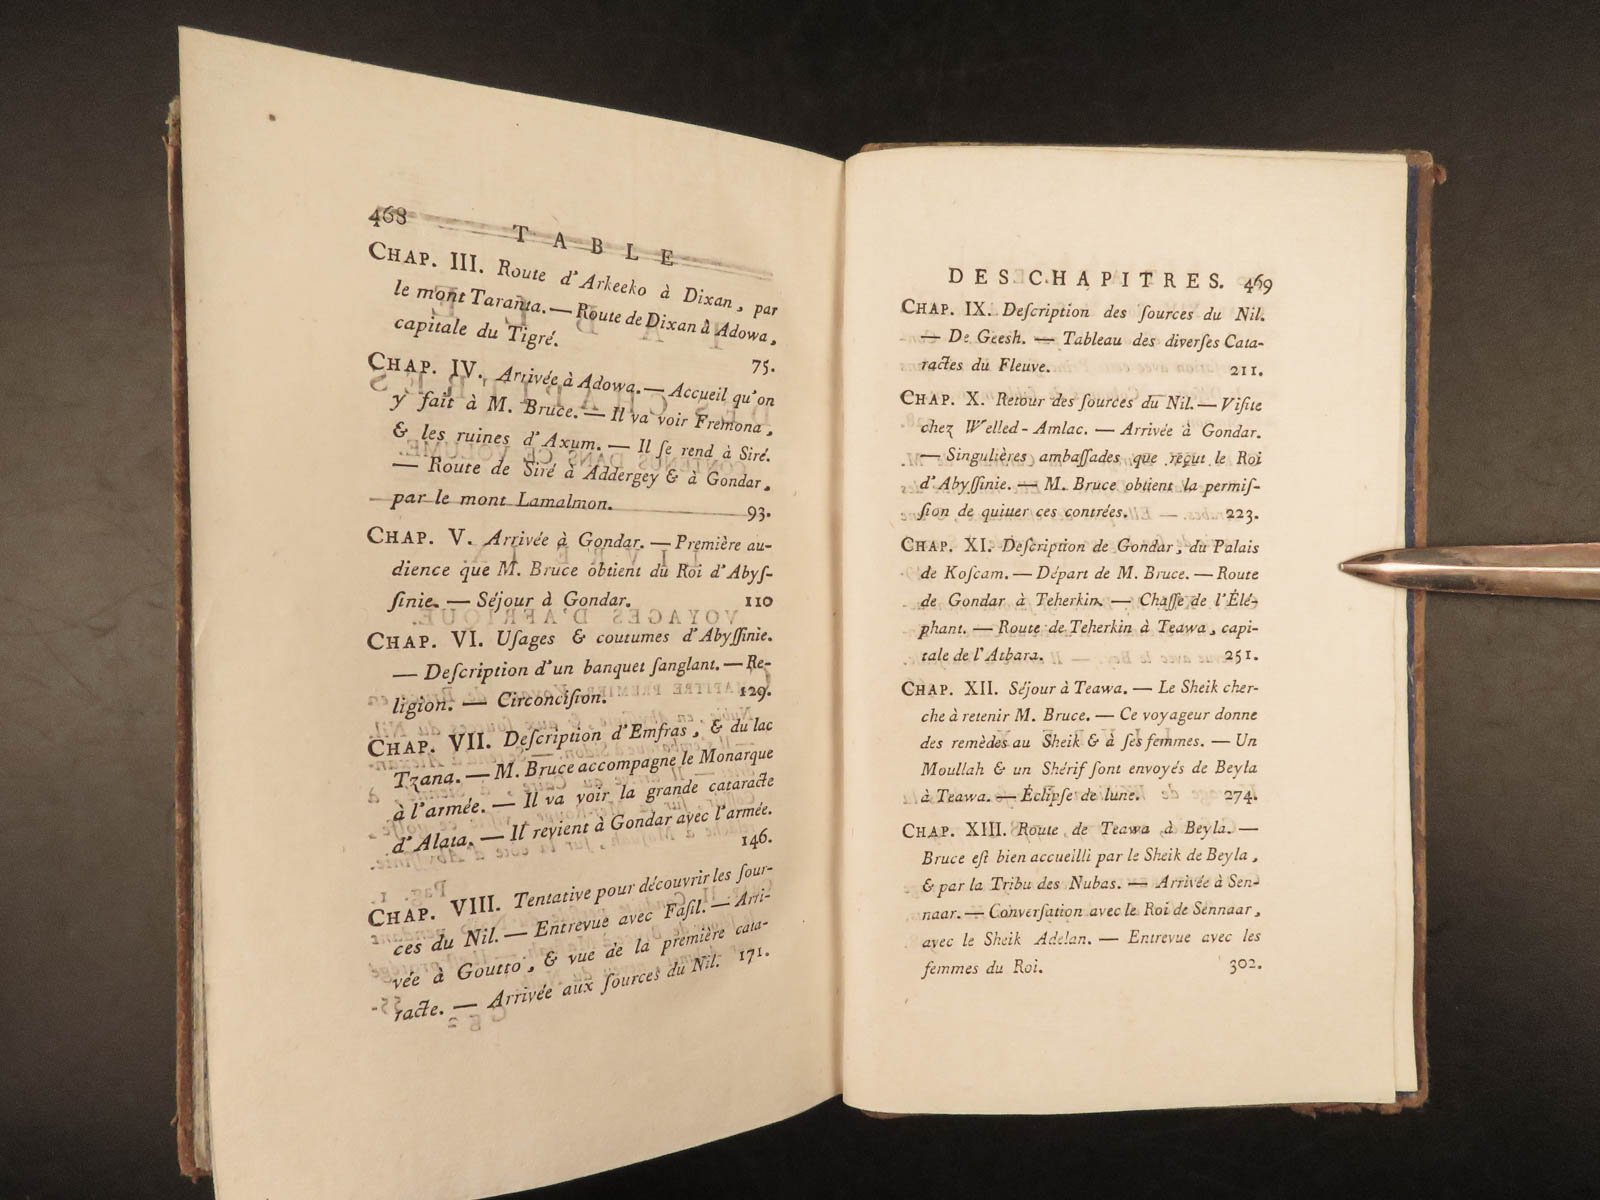 468
TABLE
CHAP. III. Route d'Arkeeko à Dixan, par
le mont Taranta. — Route de Dixan à Adowa,
capitale du Tigré.
75.
CHAP. IV. Arrivée à Adowa. — Accueil qu'on
y fait à M. Bruce. — Il va voir Fremona,
& les ruines d'Axum. — Il ſe rend à Siré.
— Route de Siré à Addergey & à Gondar,
par le mont Lamalmon.
93.
CHAP. V. Arrivée à Gondar. — Première au-
dience que M. Bruce obtient du Roi d'Abyſ-
ſinie. — Séjour à Gondar. 110
CHAP. VI. Uſages & coutumes d'Abyſſinie.
— Deſcription d'un banquet ſanglant. — Re-
ligion. — Circonciſion. 129.
CHAP. VII. Deſcription d'Emfras, & du lac
Tzana. — M. Bruce accompagne le Monarque
à l'armée. — Il va voir la grande cataracte
d'Alata. — Il revient à Gondar avec l'armée.
146.
CHAP. VIII. Tentative pour découvrir les ſour-
ces du Nil. — Entrevue avec Faſil. — Arri-
vée à Goutto, & vue de la première cata-
racte. — Arrivée aux ſources du Nil. 171.
DES CHAPITRES. 469
CHAP. IX. Deſcription des ſources du Nil.
— De Geesh. — Tableau des diverſes Cata-
ractes du Fleuve. 211.
CHAP. X. Retour des ſources du Nil. — Viſite
chez Welled-Amlac. — Arrivée à Gondar.
— Singulières ambaſſades que reçut le Roi
d'Abyſſinie. — M. Bruce obtient la permiſ-
ſion de quitter ces contrées. 223.
CHAP. XI. Deſcription de Gondar, du Palais
de Koſcam. — Départ de M. Bruce. — Route
de Gondar à Teherkin. — Chaſſe de l'Élé-
phant. — Route de Teherkin à Teawa, capi-
tale de l'Atbara. 251.
CHAP. XII. Séjour à Teawa. — Le Sheik cher-
che à retenir M. Bruce. — Ce voyageur donne
des remèdes au Sheik & à ſes femmes. — Un
Moullah & un Shérif ſont envoyés de Beyla
à Teawa. — Éclipſe de lune. 274.
CHAP. XIII. Route de Teawa à Beyla. —
Bruce eſt bien accueilli par le Sheik de Beyla,
& par la Tribu des Nubas. — Arrivée à Sen-
naar. — Converſation avec le Roi de Sennaar,
avec le Sheik Adelan. — Entrevue avec les
femmes du Roi. 302.